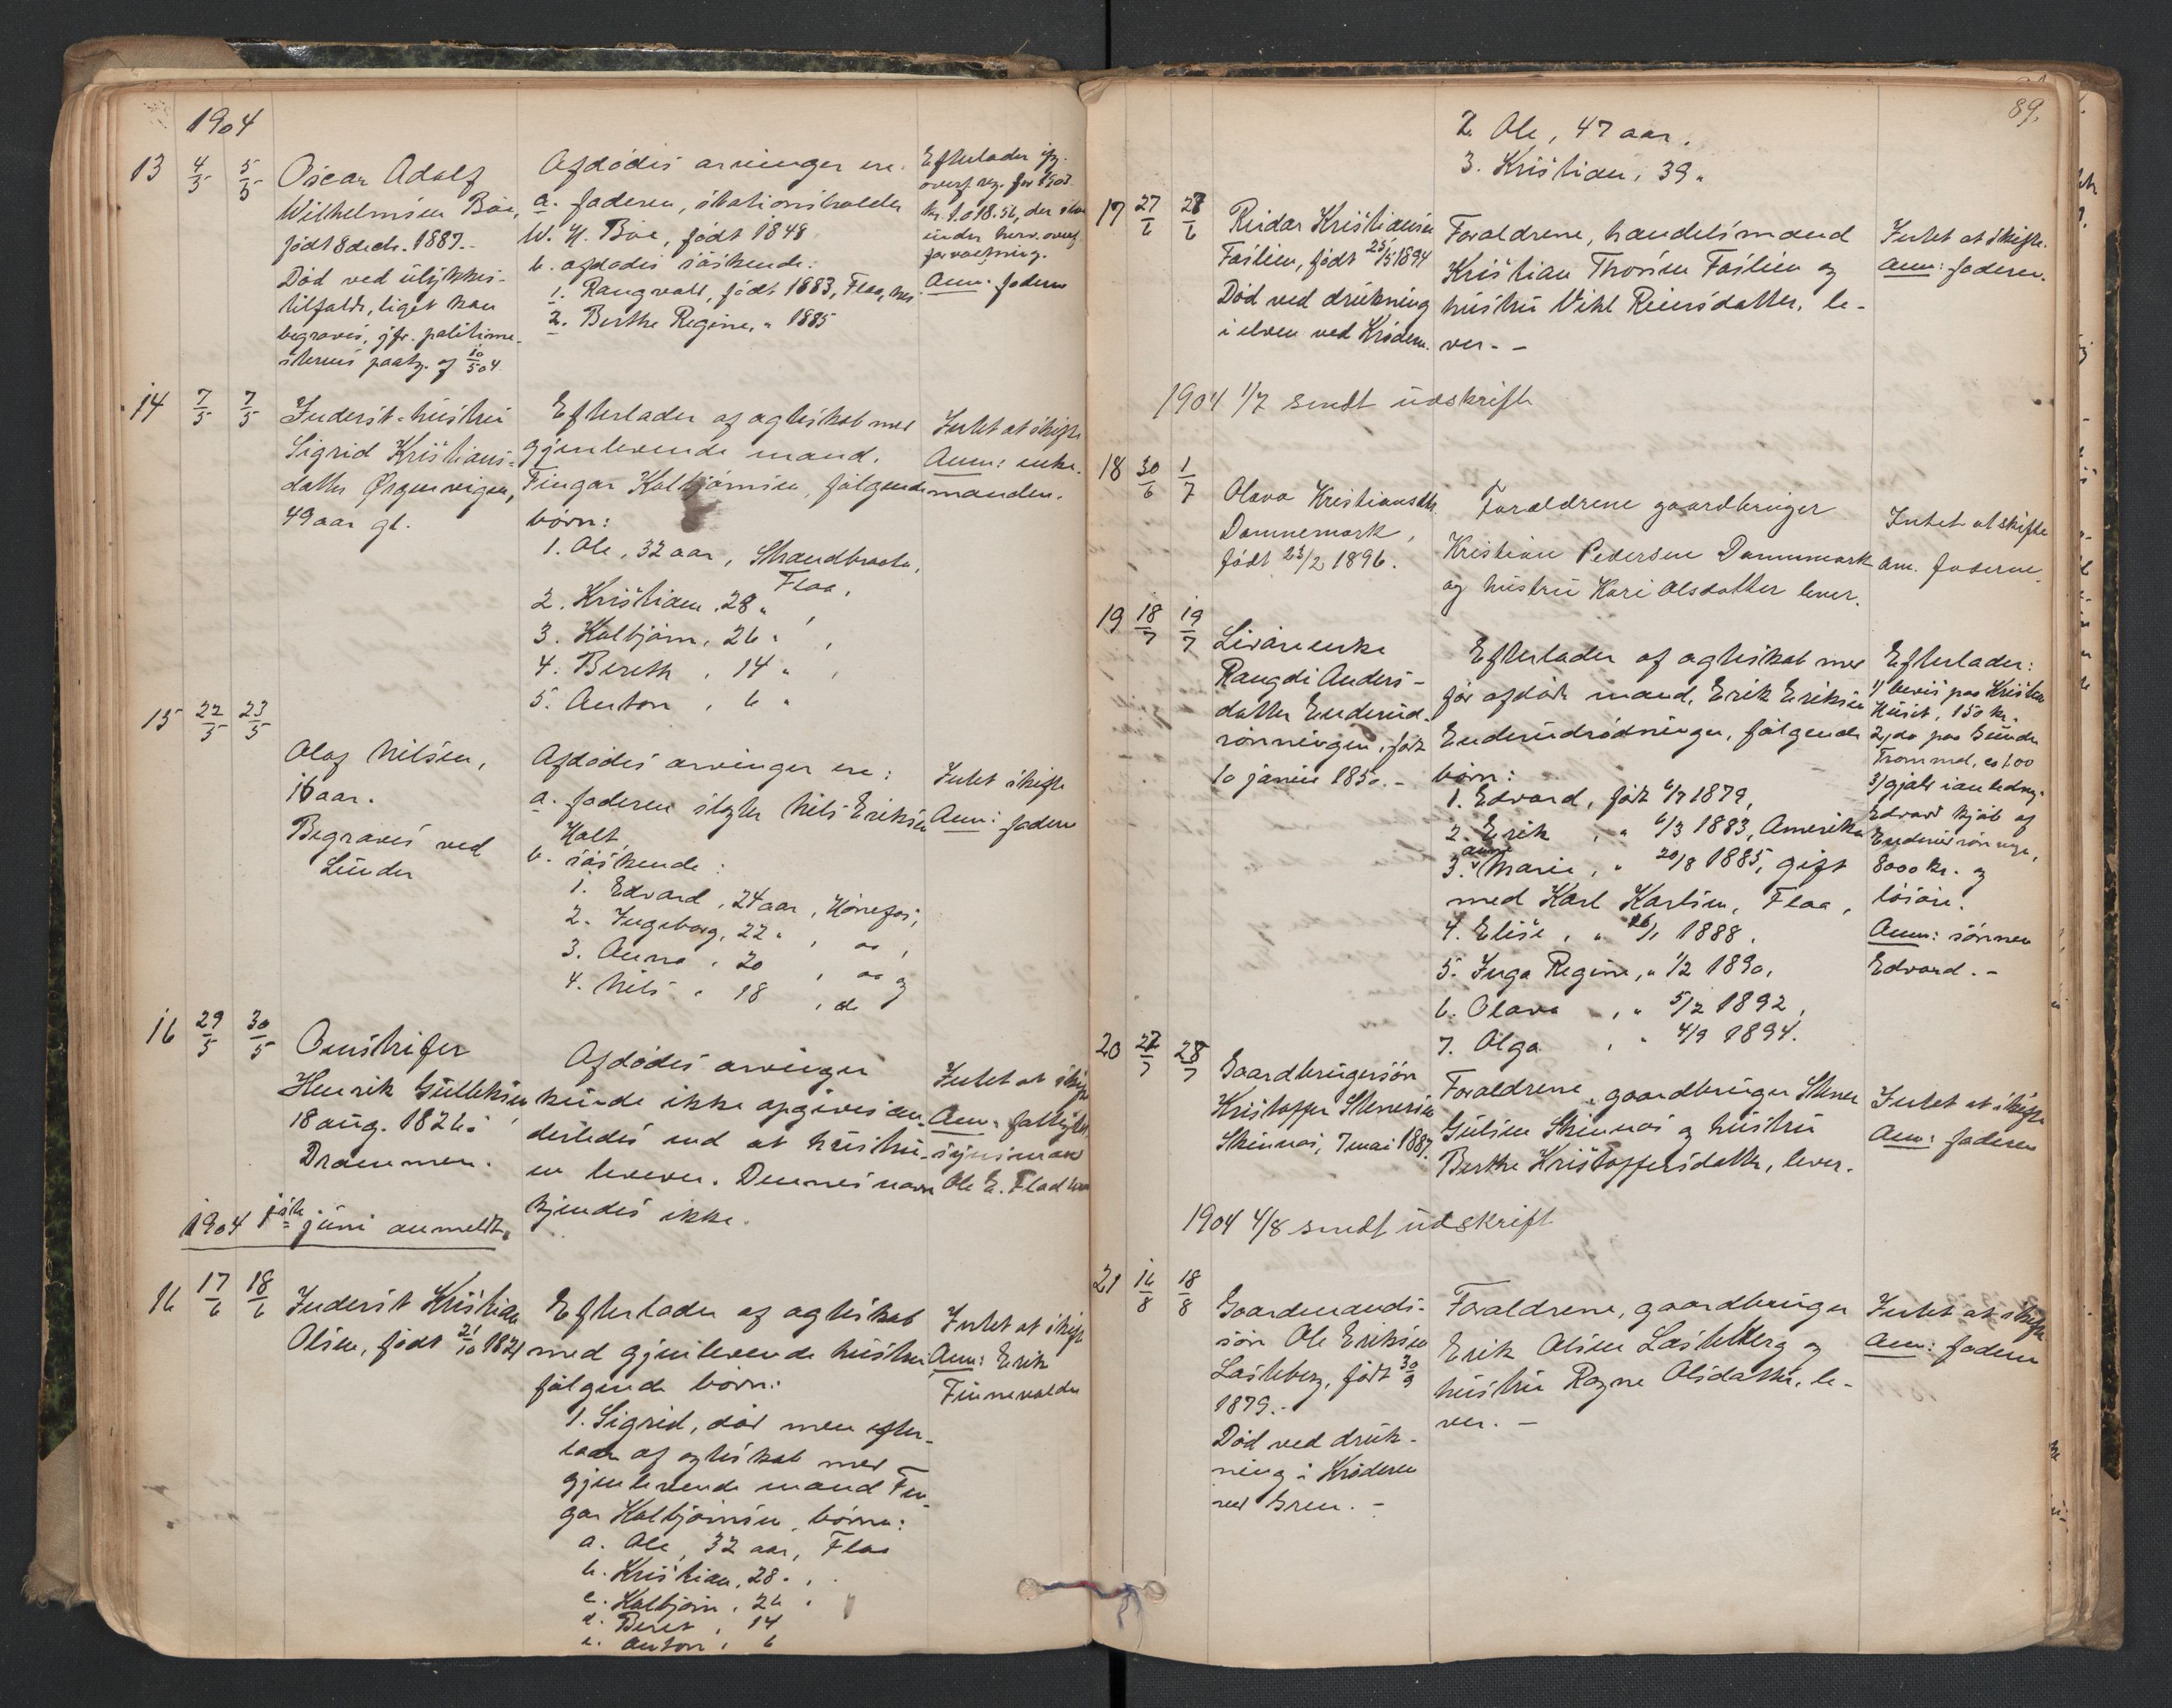 1904
13 4/5 5/5 Oscar Adolf
Wilhelmsen Boe,
født 8 decb. 1887.-
Død ved ulykkes-
tilfælde, liget kan
begraves, jfr. politime-
sterens paateg. af 10/5 04.
Afdødes arvinger ere:
a. faderen, stationsholder
W. H. Boe, født 1848
b. afdødes søskende:
1. Rangvald, født 1883, Flaa,
2. Berthe Regine, " 1885
Efterlader
overf. reg. for 1903
kr. 1.018.56, der
under herv. overf.
forvaltning.
Anm: faderen
14 7/5 7/5 Inderst-hustru
Sigrid Kristians-
datter Ørgenvigen,
49 aar gl.
Efterlader af ægteskab med
gjenlevende mand,
Fingar Kolbjørnsen, følgende
børn:
1. Ole, 32 aar, Strandbraaten,
Flaa,
2. Kristian, 28 "
3. Kolbjørn, 26 "
4. Bereth, 14 "
5. Anton, 6 "
Intet at skifte
Anm: enke-
manden.
15 22/5 23/5
Olaf Nilsen,
16 aar.
Begraves ved
Lunder
Afdødes arvinger ere:
a. faderen slagter Nils Eriksen
Holt,
b. søskende:
1. Edvard, 24 aar, Hønefos,
2. Ingeborg, 22 " , do,
3. Anna, 20 , do og
4. Nils " 18 , do
Intet skifte
Anm: faderen
16 29/5 30/5 Omstrifer
Henrik Gulleksen
18 aug. 1826 i
Drammen.
Afdødes arvinger
kunde ikke opgives an-
derledes end at hustru-
en lever. Dennes navn
kjendes ikke.
Intet at skifte
Anm: fattigtil-
synsmand
Ole E. Flad
1904 1ste juni anmeldt.
16 17/6 18/6 Inderst Kristian
Olsen, født 21/10 1821
Efterlader af ægteskab
med gjenlevende hustru
følgende børn:
1. Sigrid, død men efter-
lader af ægteskab med
gjenlevende mand Fin-
gar Kolbjørnsen, børn:
a. Ole, 32 aar, Flaa
b. Kristian, 28 " ,
c. Kolbjørn, 26 "
d. Beret, 14
e. Anton, 6
Intet at skifte
Anm: Erik
Finnevolden
89.
2. Ole, 47 aar.
3. Kristian, 39 "
17 27/6 28/6 Reidar Kristiansen
Faslien, født 25/5 1894
Død ved drukning
i elven ved Krødern.
Forældrene, handelsmand
Kristian Thorsen Faslien og
hustru Vikl Reiersdatter, le-
ver. -
Intet at skifte.
Anm: faderen.
1904 1/7 sendt udskrift
18 30/6 1/7
Olava Kristiansdtr.
Damnemark,
født 23/2 1896.
Forældrene gaardbruger
Kristian Pedersen Damnemark
og hustru Kari Olsdatter lever.
Intet at skifte
Anm. faderen.
19 18/7 19/7
Livøreenke
Rangdi Anders-
datter Enderud-
rønningen, født
10 januar 1850.-
Efterlader af ægteskab med
før afdøde mand, Erik Eriksen
Enderudrødningen, følgende
børn:
1. Edvard, født 6/7 1879,
2. Erik, " 6/3 1883, Amerika
3. Anne Marie, " 20/8 1885, gift
med Karl Karlsen, Flaa,
4. Elise, " 26/1 1888,
5. Inga Regine, " 1/2 1890,
6. Olava, " 5/2 1892,
7. Olga, " 4/9 1894.
Efterlader:
1/ bevis paa Kristen
Huset, 150 kr.
2/ do paa Gunder
Trommel, 100
3/ gjæld i anledn.
Edvard kjøb af
Enderudrønningen,
8000 kr. og
løsøre.
Anm: sønnen
Edvard. -
20 27/7 28/7
Gaardbrugersøn
Kristoffer Stenersen
Skinnes, 7 mai 1887.
Forældrene, gaardbruger Stener
Gulsen Skinnes og hustru
Berthe Kristoffersdatter, lever.
Intet at skifte
Anm: faderen
1904 4/8 sendt udskrift
21 16/8 18/8
Gaardmands-
søn Ole Eriksen
Lasteberg, født 30/9
1879.-
Død ved druk-
ning i Krøderen
ved Gren. -
Forældrene, gaardbruger
Erik Olsen Lasteberg og
hustru Ragne Olsdatter, le-
ver. -
Intet at skifte
Anm: faderen